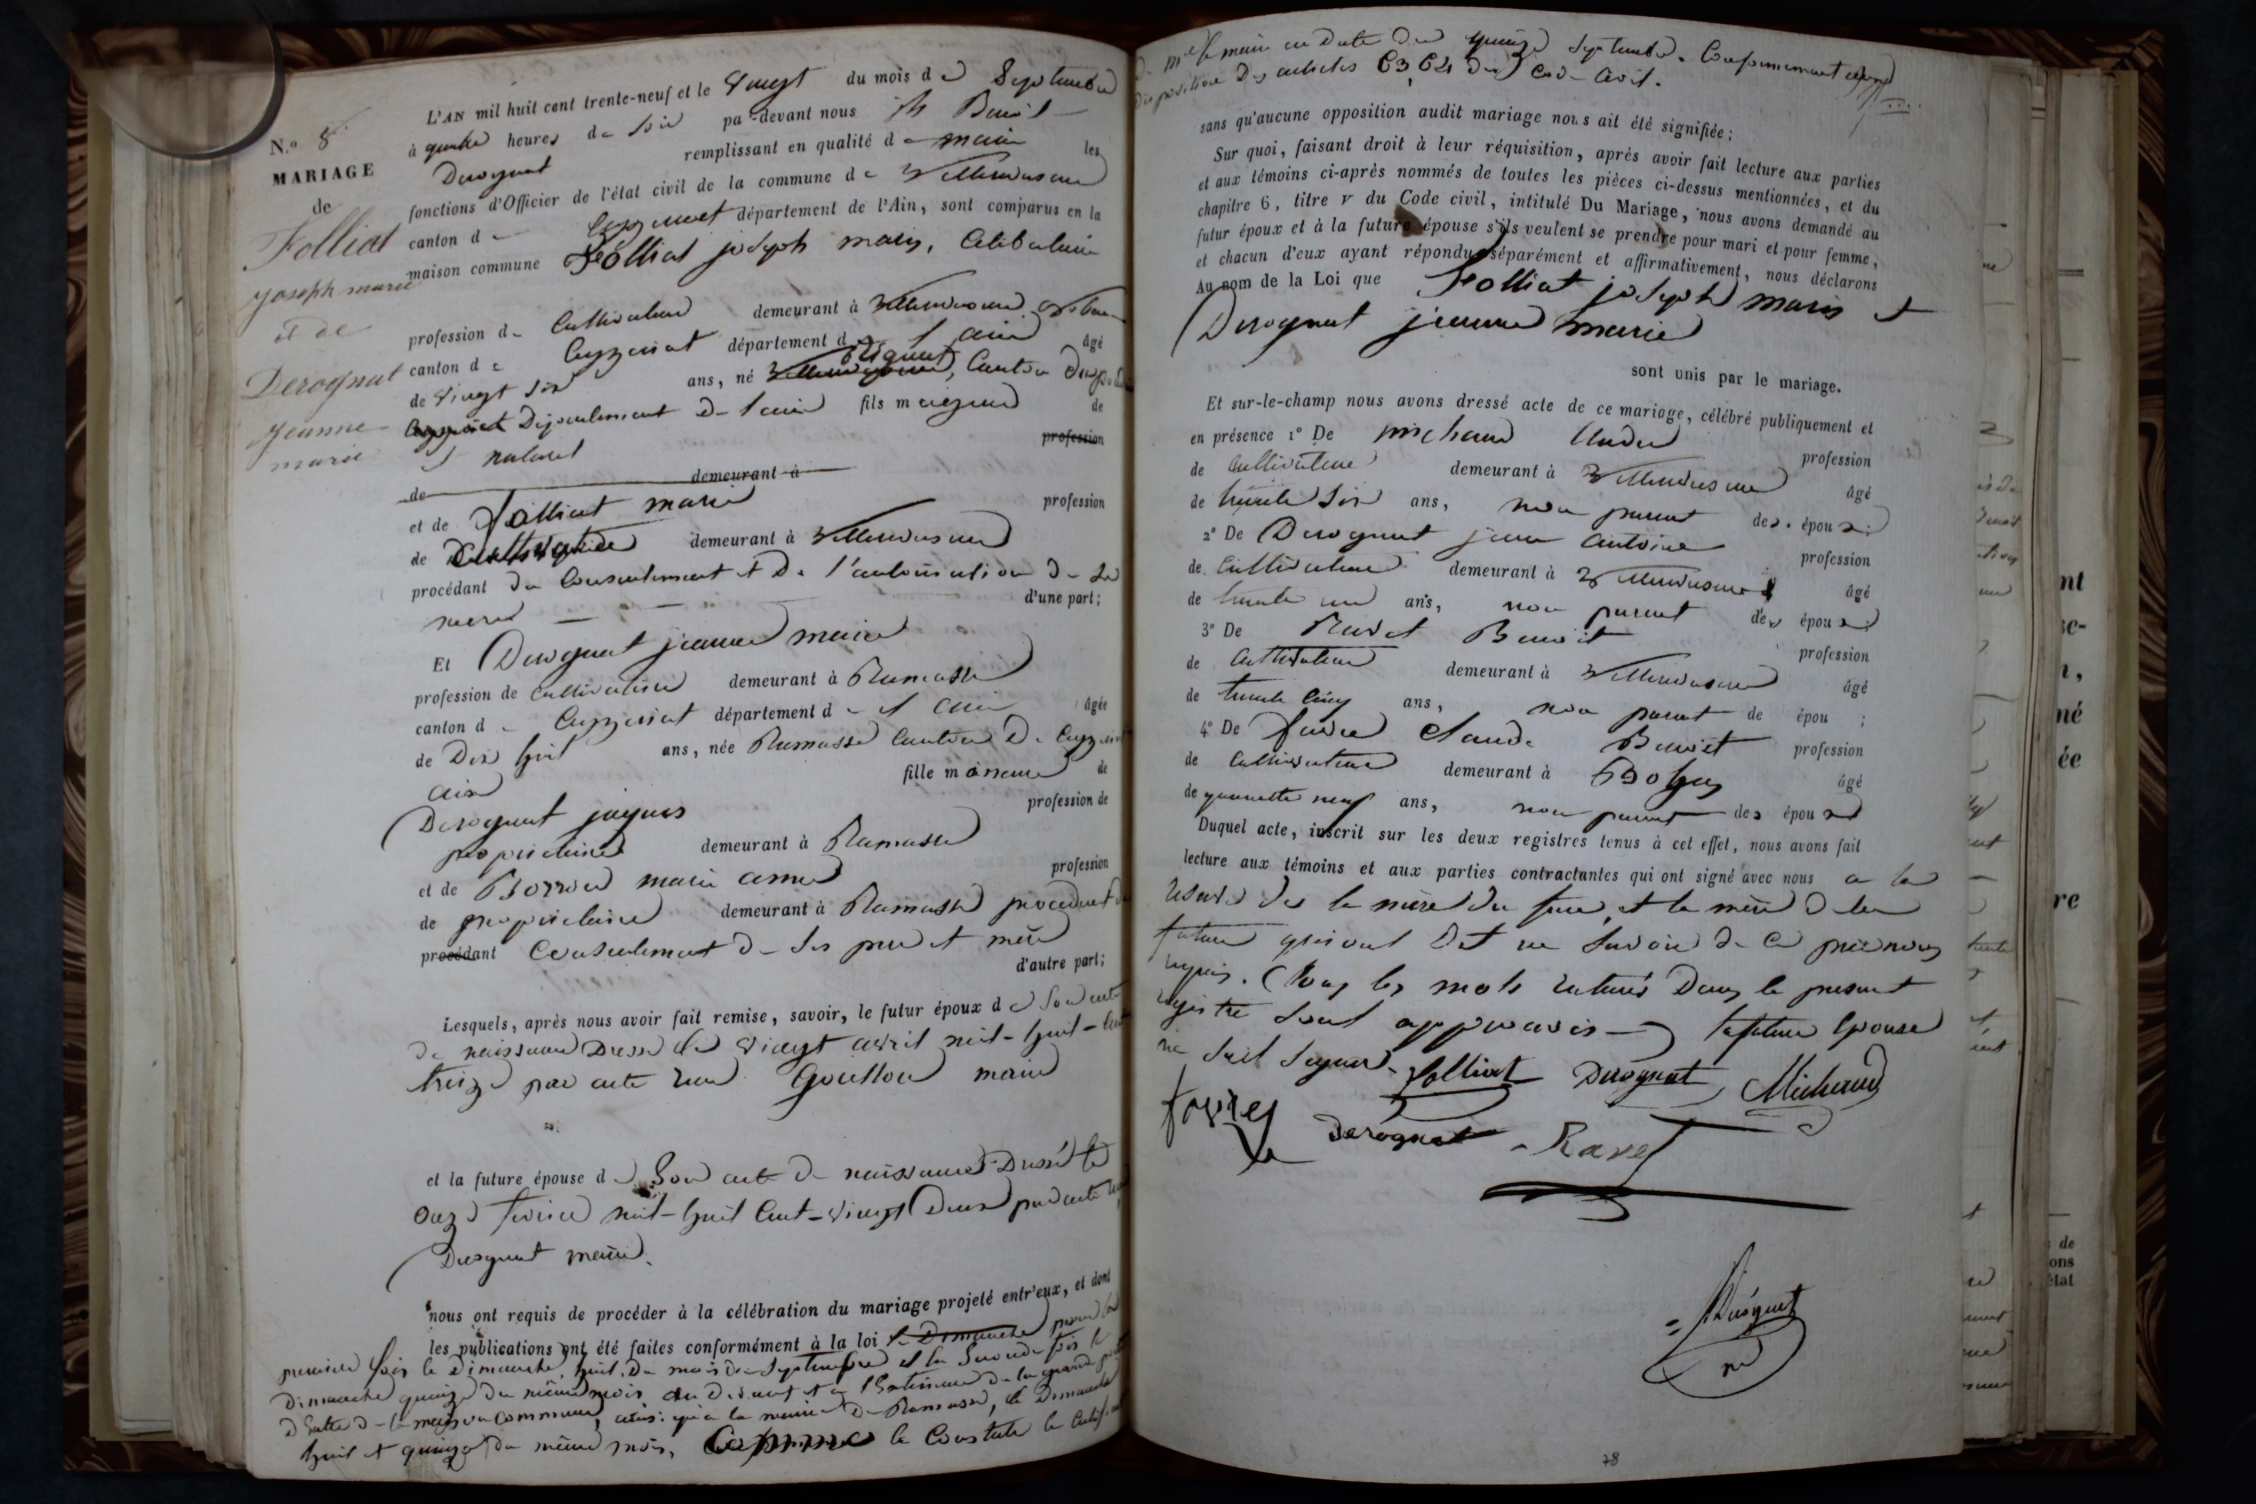 N.o 8
MARIAGE
de
Folliat
joseph marie
et de
Derognat
jeanne
marie
L'AN mil huit cent trente-neuf et le Vingt du mois de Septembre
à quatre heures de soir pa-devant nous Benoit
Derognat remplissant en qualité de maire les
fonctions d'Officier de l'état civil de la commune de Villereversure
canton de Ceyzeriat département de l'Ain, sont comparus en la
maison commune Folliat joseph marie, Celibataire
profession de Cultivateur demeurant à Villereversure
canton de Ceyzeriat département de l'ain âgé
de Vingt six ans, né Villereversure, Canton
Département de l'ain fils majeur de
et naturel profession
de demeurant à
et de Folliat marie profession
de Cultivatrice demeurant à Villereversure
procédant du Consentement et De l'autorisation De sa
mere d'une part;
Et Derognat jeanne marie
profession de Cultivatrice demeurant à Ramasse
canton de Ceyzeriat département de l'ain âgée
de Dix huit ans, née Ramasse Canton De Ceyzeriat
ain fille mineure de
Derognat jaques profession de
propriétaire demeurant à Ramasse
et de marie anne profession
de propriétaire demeurant à Ramasse procédant du
procédant Consentement de ses pere et mère
d'autre part;
Lesquels, après nous avoir fait remise, savoir, le futur époux de Son acte
De naissance Dressé le Vingt avril mil-huit-cent
treize par acte reçu Gouillou maire
et la future épouse de Son acte De naissance Dressé le
onze fevrier mil-huit Cent-vingt Deux par acte reçu
Derognat maire.
nous ont requis de procéder à la célébration du mariage projeté entr'eux, et dont
les publications ont été faites conformément à la loi le Dimanche pour la
premiere fois le Dimanche huit Du mois De Septembre et la Seconde fois le
Dimanche quinze du même mois au Devant et à l'Extérieur De la grande porte
D'Entrée De la maison Commune, ainsi qu'à la mairie De Ramasse, le Dimanche
huit et quinze du même mois, Comme le Constate le Certificat
De mr le maire en Date Du quinze Septembre. Conformement aux
dispositions Des articles 63, 64 du Code Civil.
sans qu'aucune opposition audit mariage nous ait été signifiée;
Sur quoi, faisant droit à leur réquisition, après avoir fait lecture aux parties
et aux témoins ci-après nommés de toutes les pièces ci-dessus mentionnées, et du
chapitre 6, titre V du Code civil, intitulé Du Mariage, nous avons demandé au
futur époux et à la future épouse s'ils veulent se prendre pour mari et pour femme,
et chacun d'eux ayant répondu séparément et affirmativement, nous déclarons
Au nom de la Loi que Folliat joseph marie et
Derognat jeanne marie
sont unis par le mariage.
Et sur-le-champ nous avons dressé acte de ce mariage, célébré publiquement et
en présence 1° De michaud André profession
de Cultivateur demeurant à Villereversure âgé
de trente Six ans, non parent des époux;
2° De Derognat jean antoine profession
de Cultivateur demeurant à Villereversure âgé
de trente un ans, non parent des époux;
3° De Ravet Benoit profession
de Cultivateur demeurant à Villereversure âgé
de trente Cinq ans, non parent de épou ;
4° De favre Claude Benoit profession
de Cultivateur demeurant à Bohas âgé
de quarante neuf ans, non parent des époux
Duquel acte, inscrit sur les deux registres tenus à cet effet, nous avons fait
lecture aux témoins et aux parties contractantes qui ont signé avec nous a la
reserve de la mère du futur, et la mère De la
future qui ont Dit ne Savoir de ce par nous
requis. Tous les mots raturés Dans le present
registre Sont approuvés la future Epouse
ne Sait Signer. Folliat Derognat Michaud
favre Derognat Ravet
Derognat
78